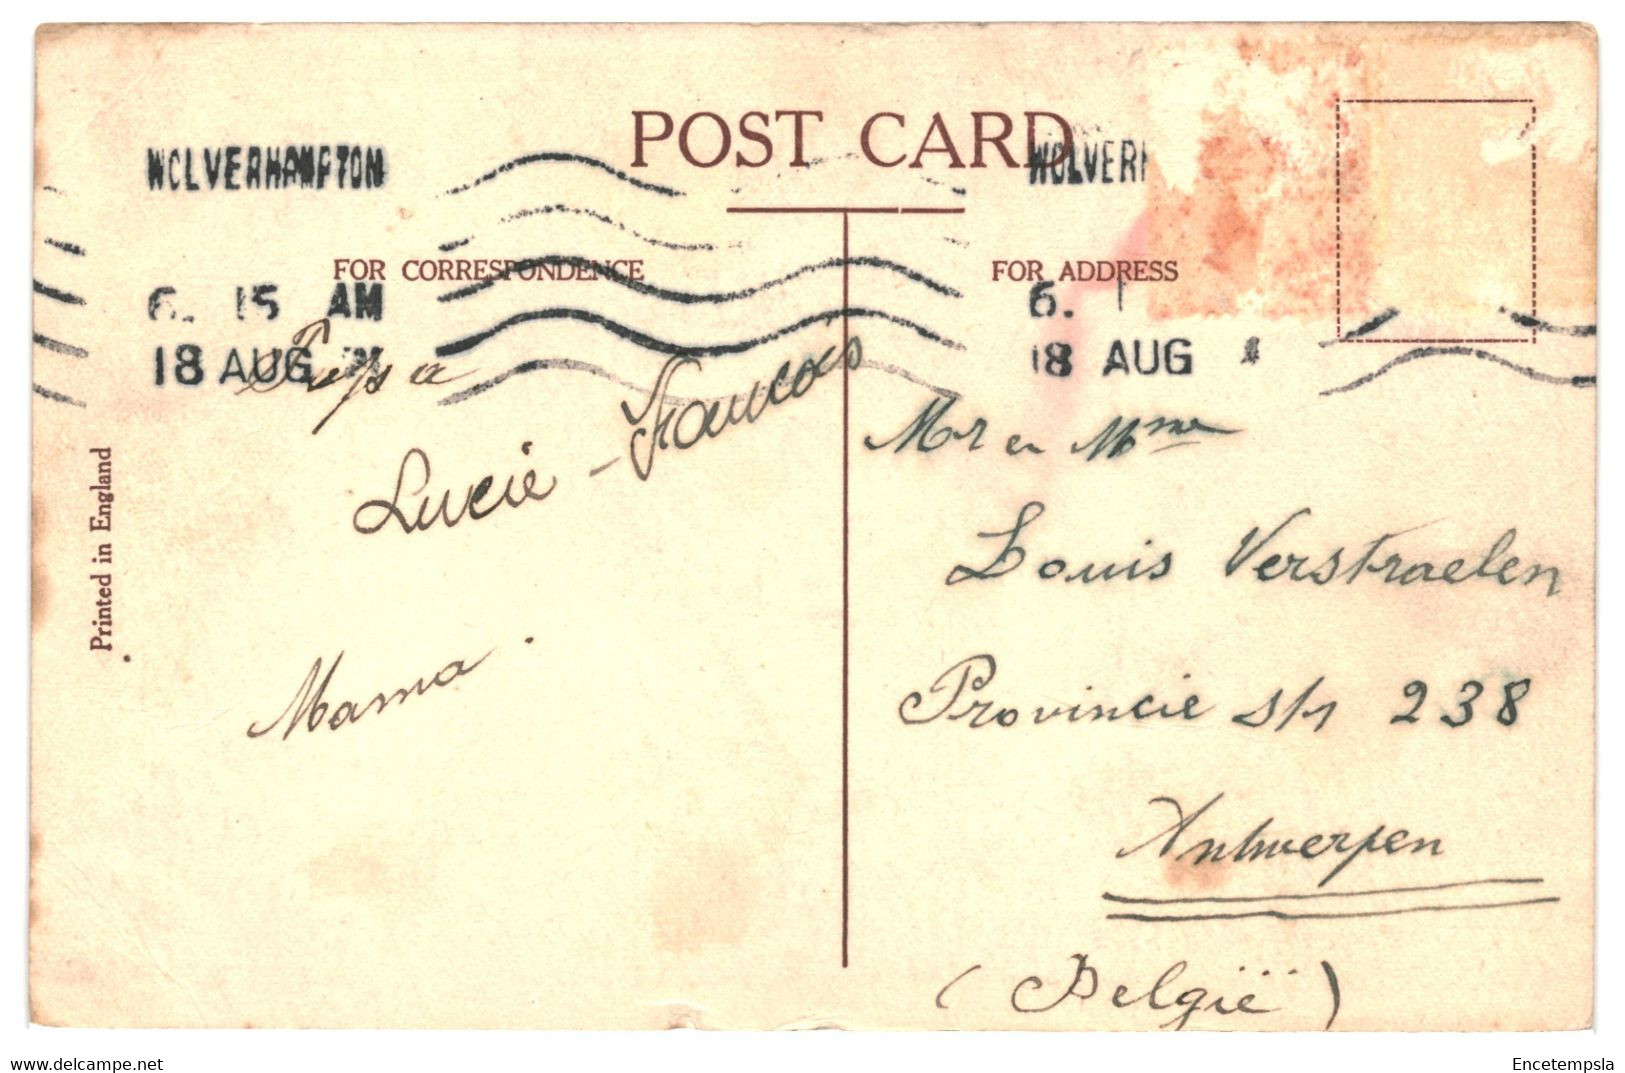 POST CARD
WOLVERHAMPTON
WOLVER
FOR CORRESPONDENCE
FOR ADDRESS
6. 15 AM
18 AUG
6. 1
18 AUG
Papa
Lucie - François
Mama .
Mr en Mme
Louis Verstraelen
Provincie str 238
Antwerpen
( België )
Printed in England
delcampe.net
Encetempsla